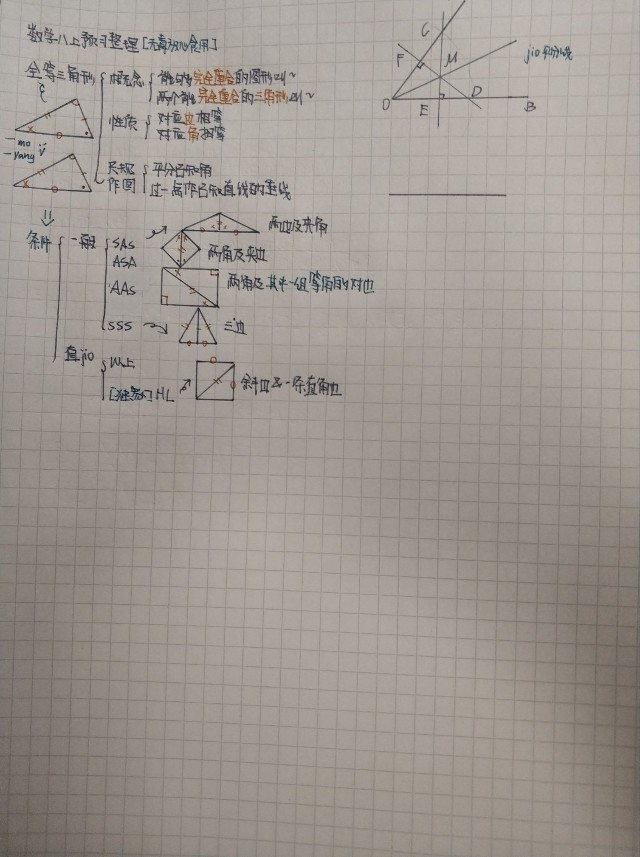 数学八上预习整理[无毒放心食用]
全等三角形
概念
能够完全重合的图形叫~
两个能完全重合的三角形叫~
性质
对应边相等
对应角相等
一mo
一yang
尺规
作图
平分已知角
过一点作已知直线的垂线
条件
一般
SAS
两边及夹角
ASA
两角及夹边
AAS
两角及其中一组等角的对边
SSS
三边
直jio
以上
HL
斜边及一条直角边
C
F
M
O
E
D
B
jio平分线